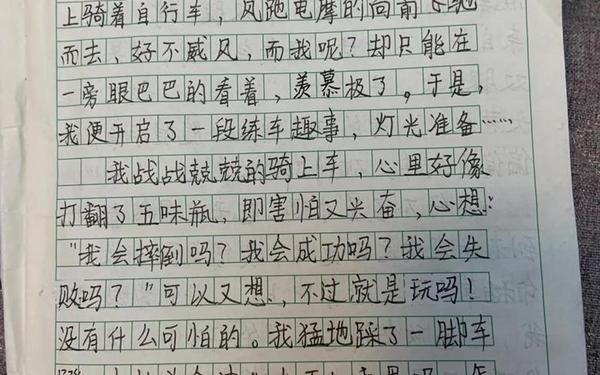 上骑着自行车,风跑电摩的向前飞驰
而去,好不威风,而我呢?却只能在
一旁眼巴巴的看着,羡慕极了。于是,
我便开启了一段练车趣事,灯光准备……
我战战兢兢的骑上车,心里好像
打翻了五味瓶,即害怕又兴奋,心想:
“我会摔倒吗?我会成功吗?我会失
败吗?”可以又想,不过就是玩吗!
没有什么可怕的。我猛地踩了一脚车